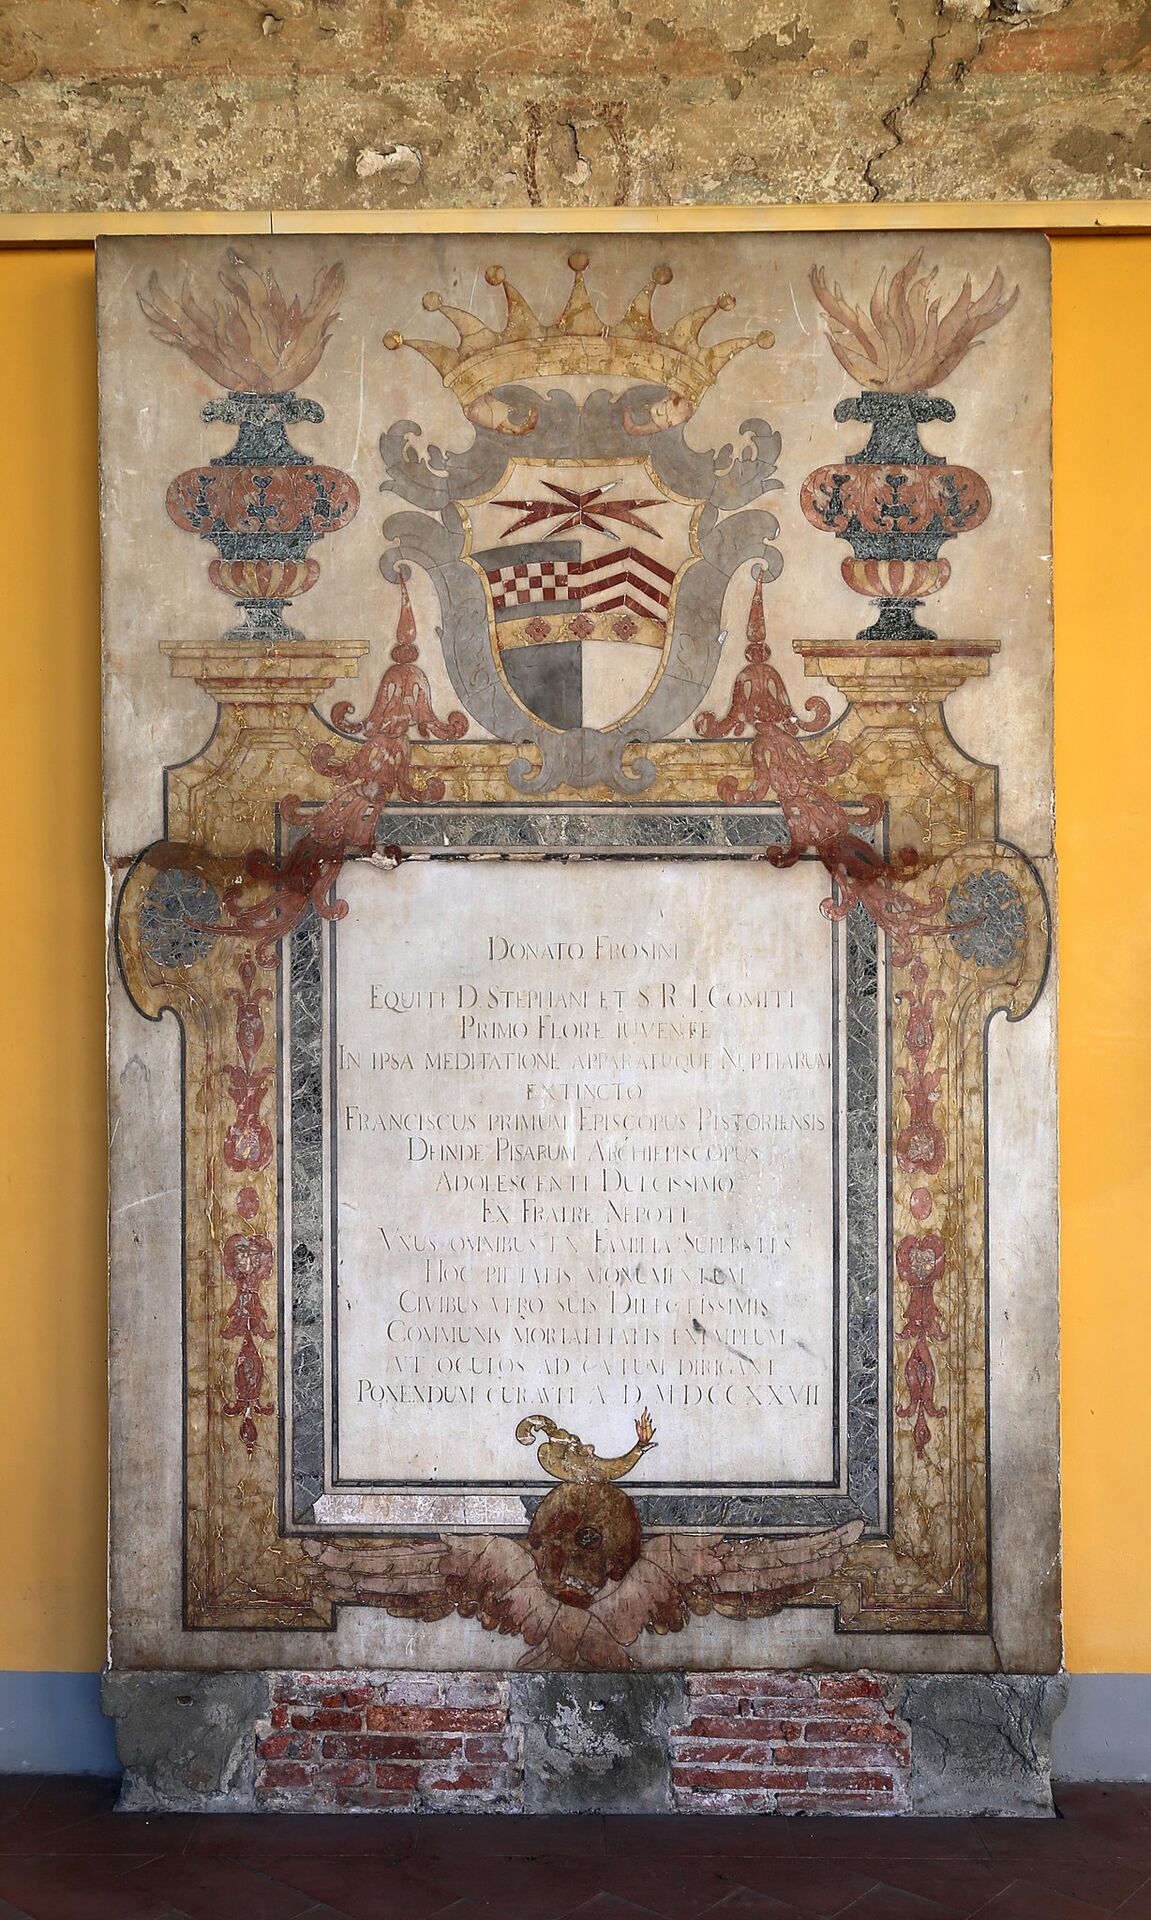 DONATO FROSINI
EQUITI D. STEPHANI ET S. R. I. COMITI
PRIMO FLORE IUVENTE
IN IPSA MEDITATIONE APPARATUQUE NUPTIARUM
EXTINCTO
FRANCISCUS PRIMUM EPISCOPUS PISTORIENSIS
DEINDE PISARUM ARCHIEPISCOPUS
ADOLESCENTI DULCISSIMO
EX FRATRE NEPOTI
VNUS OMNIBUS EX FAMILIA SUPERSTES
HOC PIETATIS MONUMENTUM
CIVIBUS VERO SUIS DILECTISSIMIS
COMMUNIS MORTALITATIS EXEMPLUM
VT OCULOS AD CÆLUM DIRIGANT
PONENDUM CURAVIT A. D. MDCCXXVII